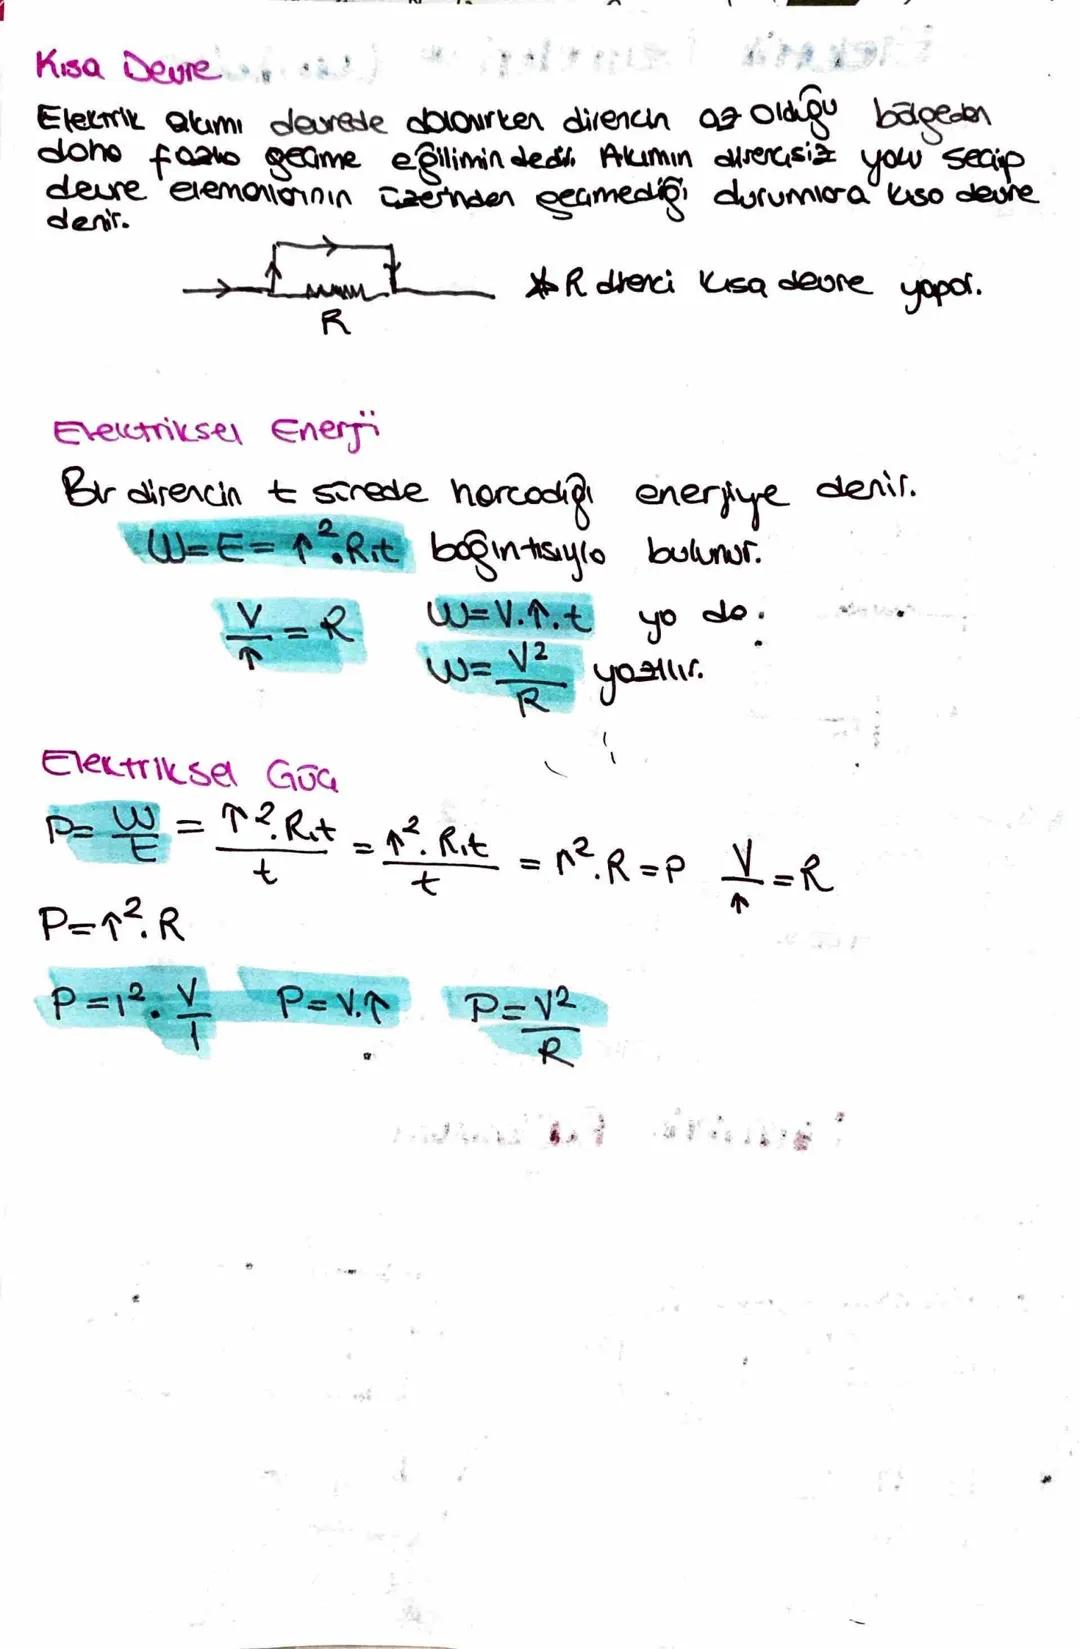 Kısa Devre
Elektrik akımı devrede dolanırken direncin az olduğu bölgeden
daha fazla geçme eğilimindedir. Akımın dirençsiz yolu seçip
devre elemanlarının üzerinden geçmediği durumlara kısa devre
denir.
R
* R direnci kısa devre yapar.
Elektriksel Enerji
Bir direncin t sürede harcadığı enerjiye denir.
W=E=↑².R.t bağıntısıyla bulunur.
V/↑ = R W=V.↑.t ya da
W=V²/R yazılır.
Elektriksel Güç
P= W/E = ↑².R.t/t = ↑².R.t/t = ↑².R=P V/↑=R
P=↑².R
P=I².V/I P=V.↑ P=V²/R